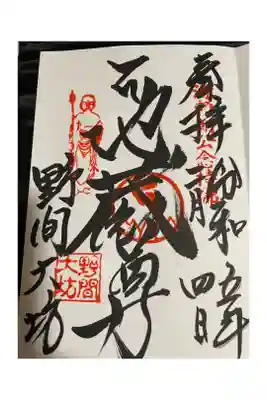 奉拝
令和五年
二月四日
地蔵尊
野間大坊
野間
大坊